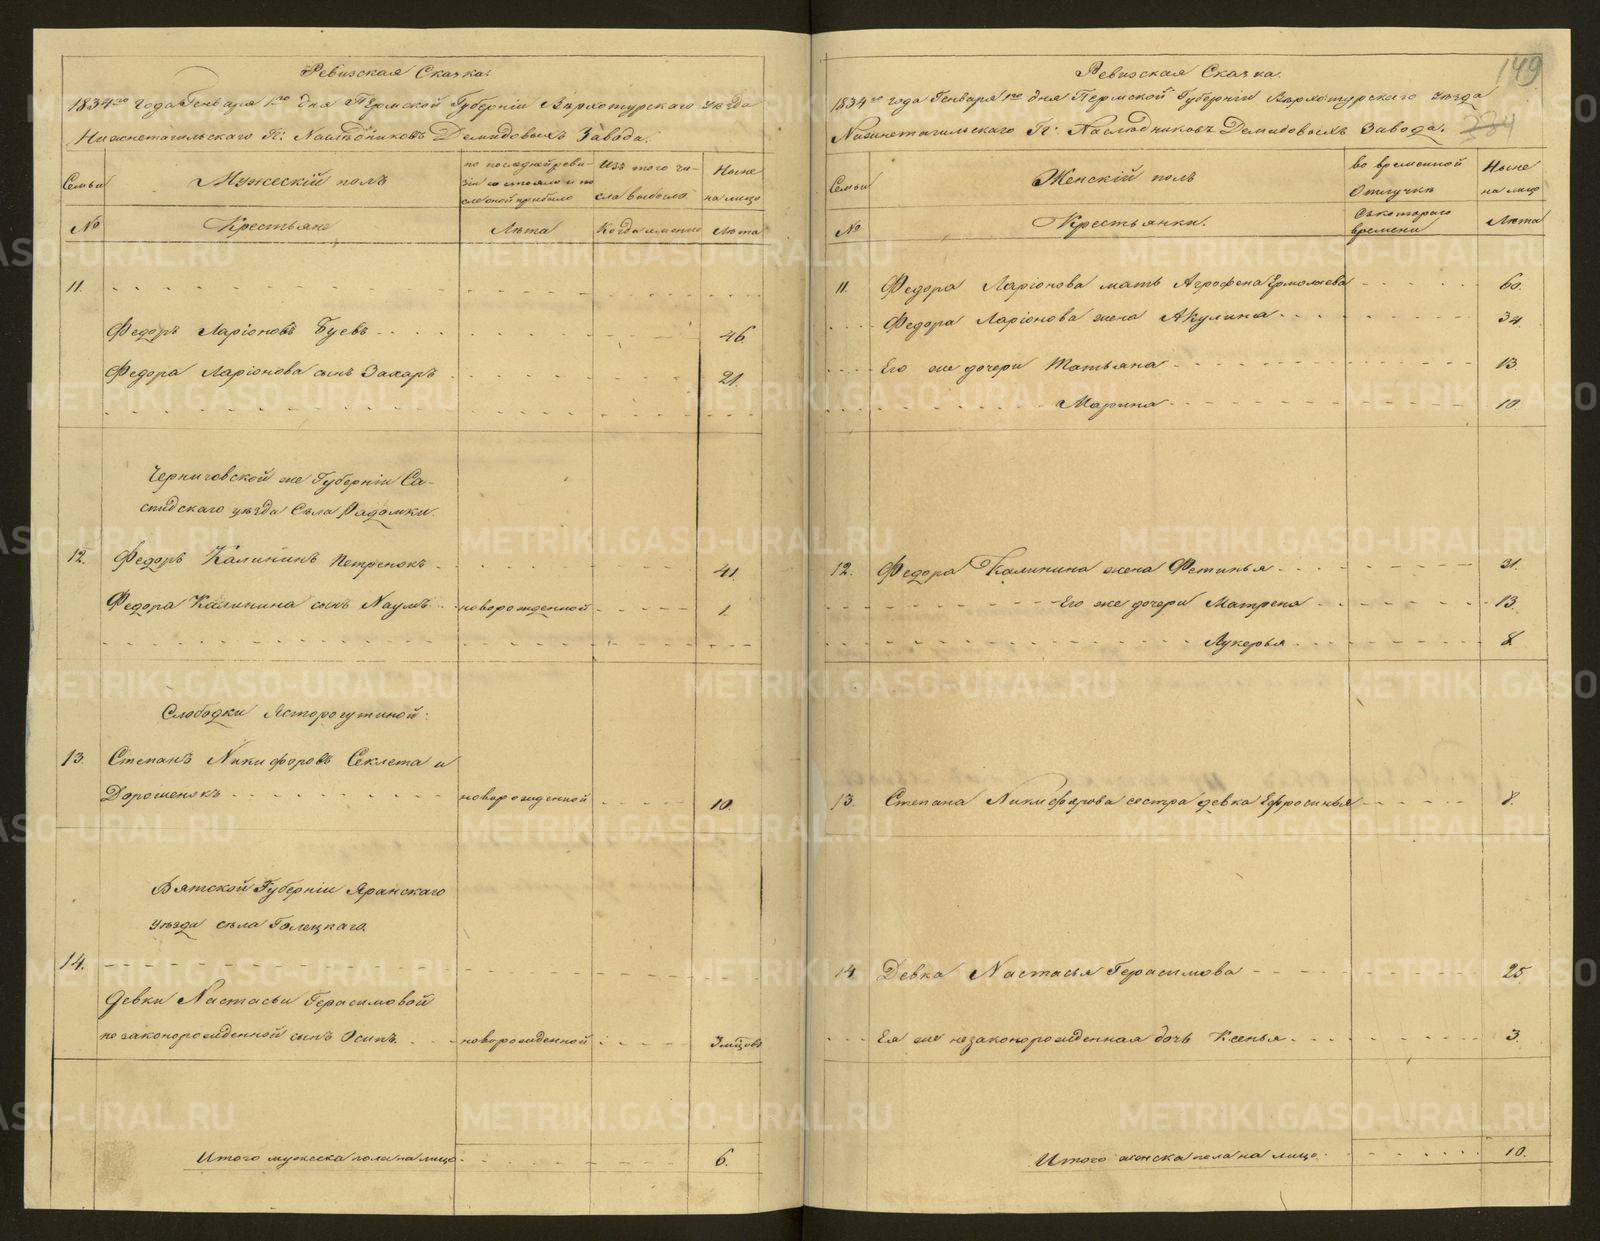 Ревизская Сказка.
1834го года Генваря 1го дня Пермской Губерніи Верхотурскаго уѣзда
Нижнетагильскаго Гг: Наслѣдниковъ Демидовыхъ Завода.
Семьи
Мужескій полъ
по последней реви-
зіи состояло и по
слѣ оной прибыло
Изъ того чи-
сла выбыло
Ныне
на лицо
№
Крестьяне
Лѣта
Когда именно
Лѣта
11.
Федоръ Ларіоновъ Буевъ 46
Федора Ларіонова сынъ Захаръ 21.
Черниговской же Губерніи Со-
уѣзда Села Радомки.
12. Федоръ Калининъ Петренокъ 41
Федора Калинина сынъ Наумъ новорожденной 1.
Слободки
13. Степанъ Никифоровъ Секлета и
Дорошенокъ новорожденной 10.
Вятской Губерніи Яранскаго
уѣзда села
14.
Девки Настасьи Герасимовой
незаконорожденной сынъ Осипъ новорожденной 3 мѣсяцовъ
Итого мужеска пола на лицо 6.
149
Ревизская Сказка.
1834го года Генваря 1го дня Пермской Губерніи Верхотурскаго уѣзда
Нижнетагильскаго Гг: Наслѣдниковъ Демидовыхъ Завода.
Семьи
Женскій полъ
во временной
Отлучкѣ
Ныне
на лицо
№
Крестьянки.
Съкотораго
времени
Лѣта
11. Федора Ларіонова мать Агрофена Ермолаева 60.
Федора Ларіонова жена Акулина 34.
Его же дочери Татьяна 13.
Марина 10.
12. Федора Калинина жена Фетинья 31.
Его же дочери Матрена 13.
Лукерья 8.
13. Степана Никифорова сестра девка Ефросинья 8.
14 Девка Настасья Герасимова 25
Ея же незаконорожденная дочь Ксенья 3.
Итого женска пола на лицо 10.
METRIKI.GASO-URAL.RU